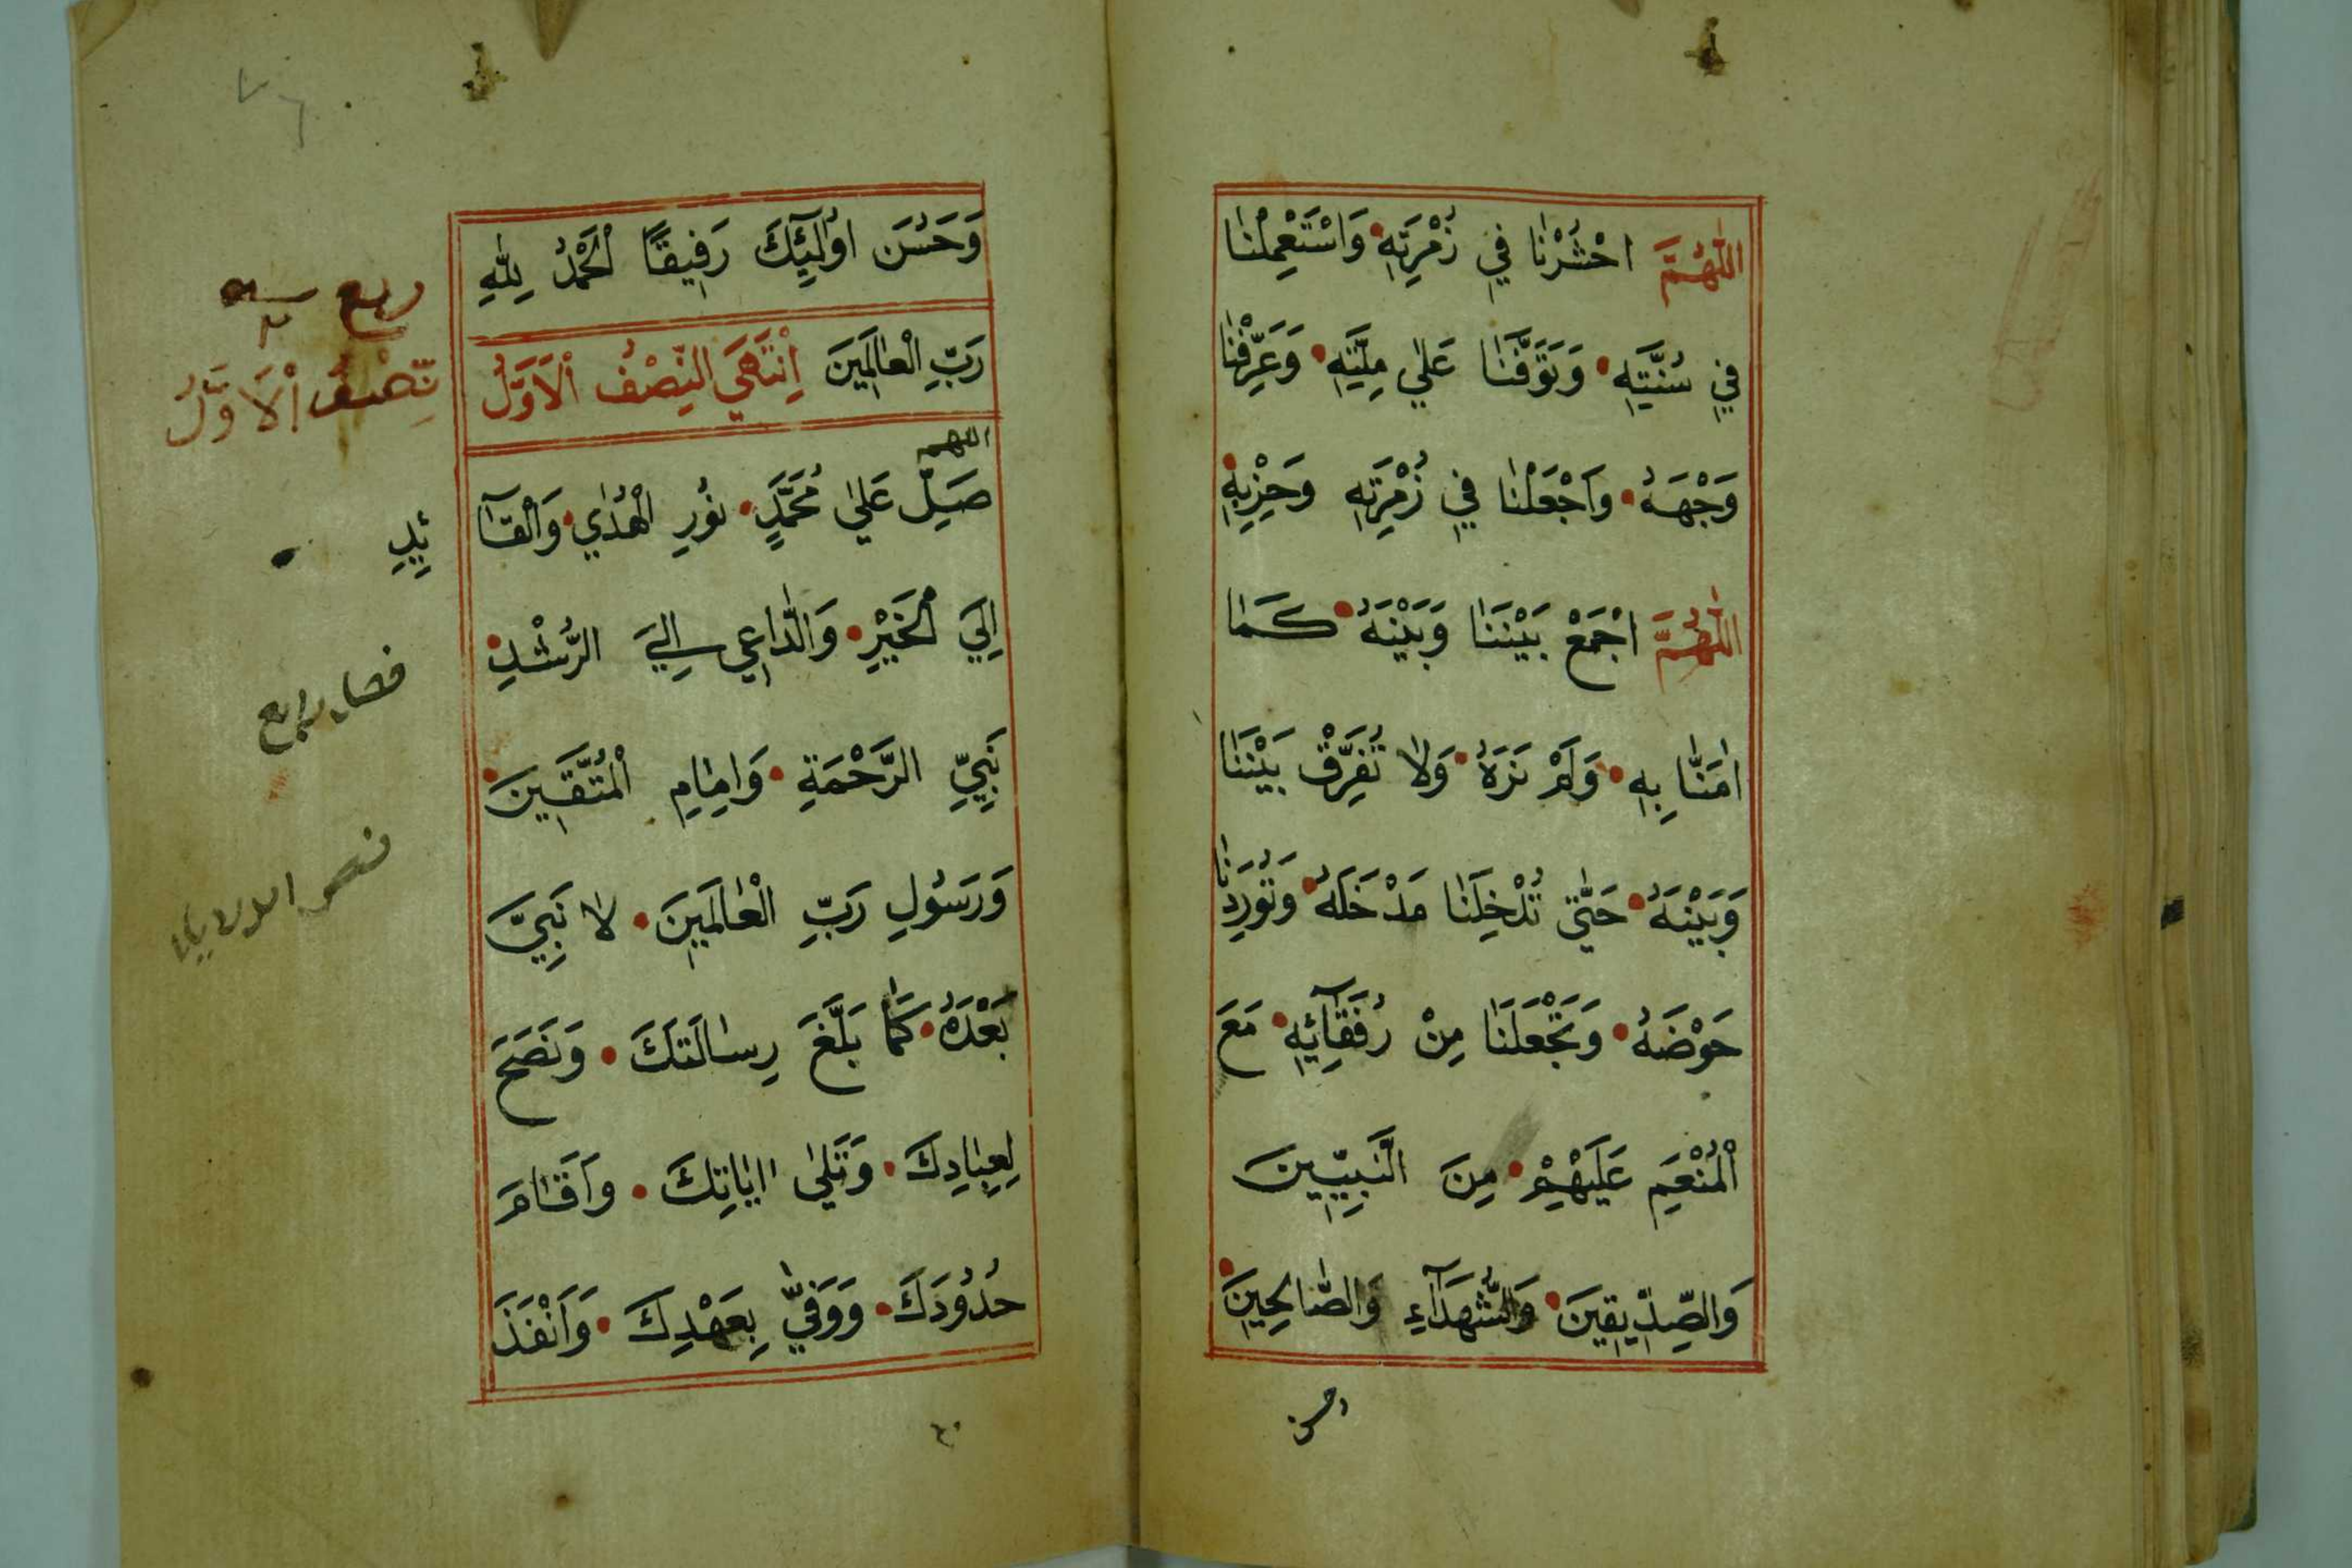 اَللّٰهُمَّ احْشُرْنَا فِي زُمْرَتِهِ وَاسْتَعْمِلْنَا
فِي سُنَّتِهِ وَتَوَفَّنَا عَلٰي مِلَّتِهِ وَعَرِّفْنَا
وَجْهَهُ وَاجْعَلْنَا فِي زُمْرَتِهِ وَحِزْبِهِ
اَللّٰهُمَّ اجْمَعْ بَيْنَنَا وَبَيْنَهُ كَمَا
اٰمَنَّا بِهِ وَلَمْ نَرَهُ وَلَا تُفَرِّقْ بَيْنَنَا
وَبَيْنَهُ حَتّٰي تُدْخِلَنَا مَدْخَلَهُ وَتُورِدَنَا
حَوْضَهُ وَتَجْعَلَنَا مِنْ رُفَقَآئِهِ مَعَ
الْمُنْعَمِ عَلَيْهِمْ مِنَ النَّبِيّٖينَ
وَالصِّدّٖيقٖينَ وَالشُّهَدَآءِ وَالصَّالِحٖينَ
وحسن
وَحَسُنَ اُولٰٓئِكَ رَفٖيقًا اَلْحَمْدُ لِلّٰهِ
رَبِّ الْعَالَمٖينَ اِنْتَهَي النِّصْفُ الْاَوَّلُ
اللهم
صَلِّ عَلٰي مُحَمَّدٍ نُورِ الْهُدٰي وَالْقَآ
ئِدِ
اِلَي الْخَيْرِ وَالدَّاعٖي اِلَي الرُّشْدِ
نَبِيِّ الرَّحْمَةِ وَاِمَامِ الْمُتَّقٖينَ
وَرَسُولِ رَبِّ الْعَالَمٖينَ لَا نَبِيَّ
بَعْدَهُ كَمَا بَلَّغَ رِسَالَتَكَ وَنَصَحَ
لِعِبَادِكَ وَتَلٰي اٰيَاتِكَ وَاَقَامَ
حُدُودَكَ وَوَفّٰي بِعَهْدِكَ وَاَنْفَذَ
ربع
نِّصْفُ الْاَوَّلُ
فصل رابع